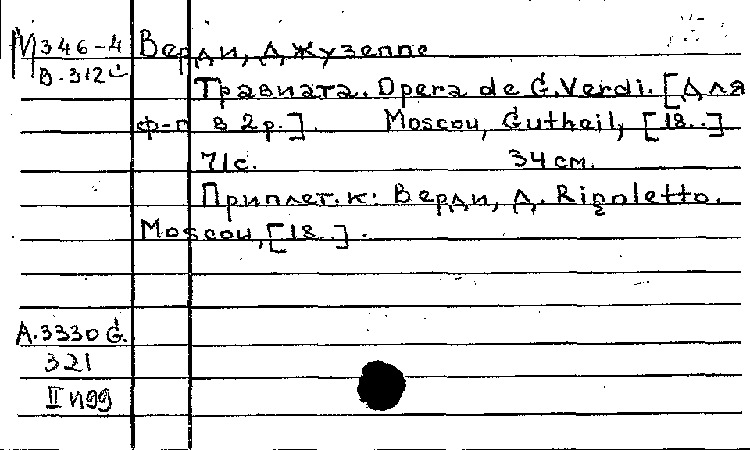 М 346-4 Верди, Джузеппе
В-312
Травиата. Opera de G. Verdi. [Для
ф-п в 2 р.]. Moscou, Gutheil, [18..]
71 с. 34 см.
Приплет. к: Верди, Д. Rigoletto.
Moscou, [18..].
A.3330 G.
321